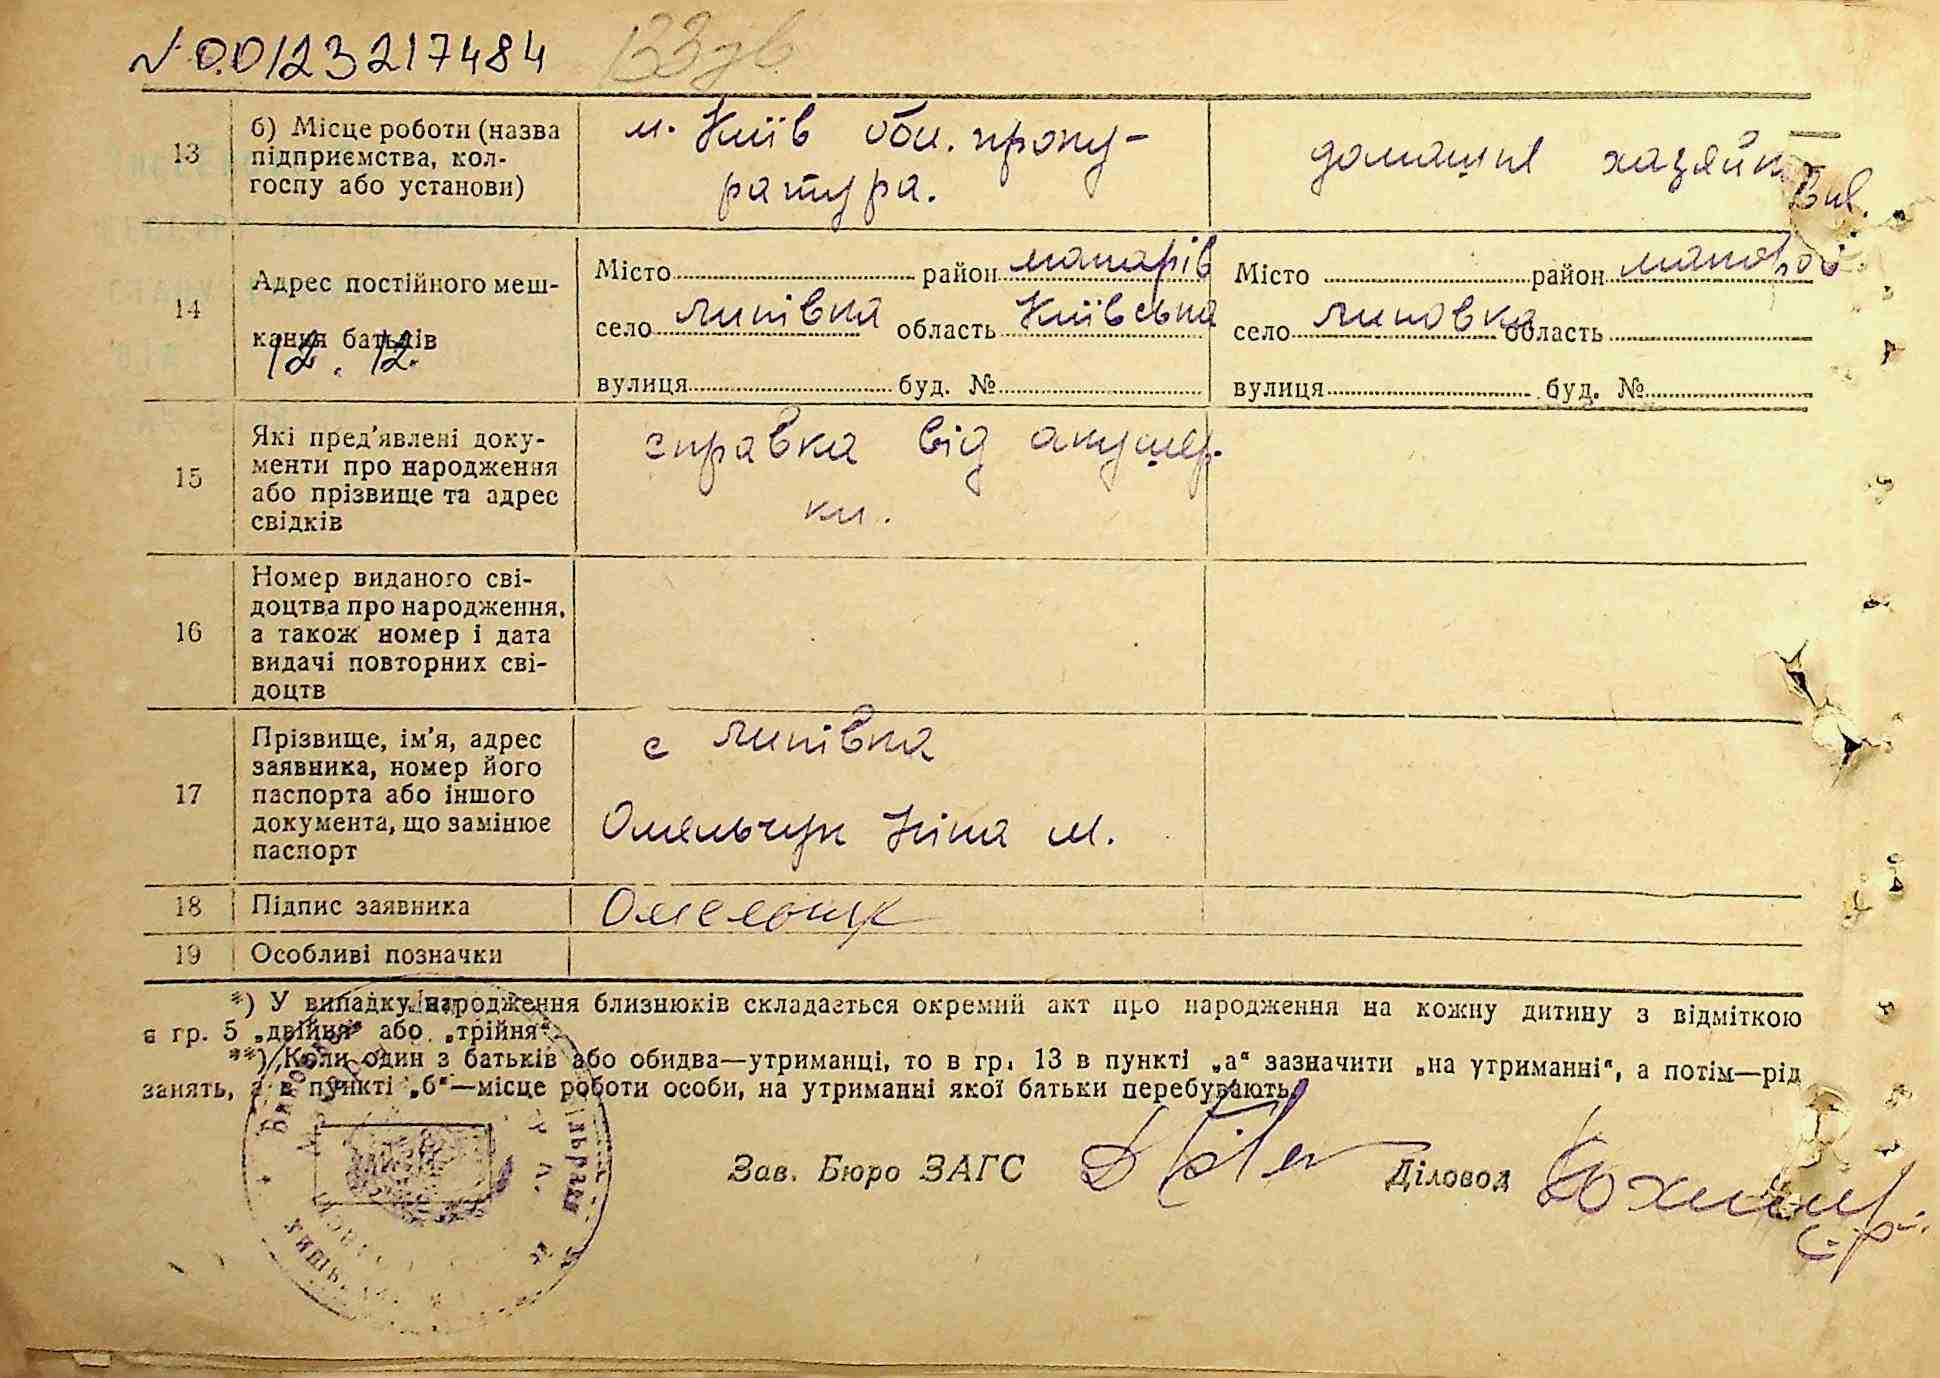 № 00123217484
13
б) Місце роботи (назва
підприємства, кол-
госпу або установи)
м. Київ обл. проку-
ратура.
домашня хазяйка
14
Адрес постійного меш-
кання батьків
12. 12.
Місто район макарів
село липівка область Київська
вулиця буд. №
Місто район
село липовка область
вулиця буд. №
15
Які пред'явлені доку-
менти про народження
або прізвище та адрес
свідків
справка від акушер-
ки.
16
Номер виданого сві-
доцтва про народження,
а також номер і дата
видачі повторних сві-
доцтв
17
Прізвище, ім'я, адрес
заявника, номер його
паспорта або іншого
документа, що замінює
паспорт
с липівка
Омельчук Ніна М.
18
Підпис заявника
Омельчук
19
Особливі позначки
*) У випадку народження близнюків складається окремий акт про народження на кожну дитину з відміткою
в гр. 5 „двійня" або „трійня".
**) Коли один з батьків або обидва—утриманці, то в гр. 13 в пункті „а" зазначити „на утриманні", а потім—рід
занять, а в пункті „б"—місце роботи особи, на утриманні якої батьки перебувають.
Зав. Бюро ЗАГС
Діловод